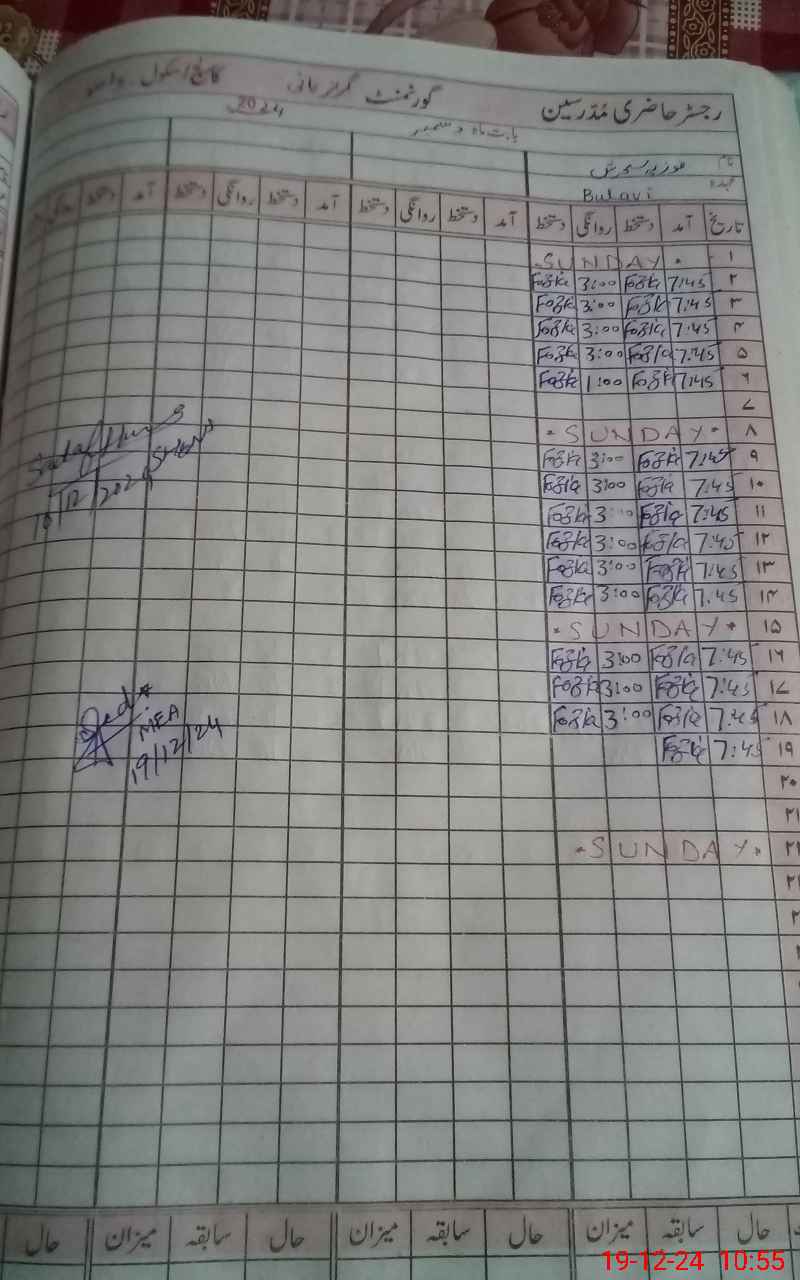 رجسٹر حاضری مُدرسین گورنمنٹ گرلز ہائی سکول
بابت ماہ دسمبر 2024
نام فوزیہ سحرش
عہدہ Bulavi
تاریخ آمد دستخط روانگی دستخط آمد دستخط روانگی دستخط آمد دستخط روانگی دستخط آمد دستخط
۱ SUNDAY
۲ 7:45 Fozia 3:00 Fozia
۳ 7:45 Fozia 3:00 Fozia
۴ 7:45 Fozia 3:00 Fozia
۵ 7:45 Fozia 3:00 Fozia
۶ 7:45 Fozia 1:00 Fozia
۷
۸ SUNDAY
۹ 7:45 Fozia 3:00 Fozia
۱۰ 7:45 Fozia 3:00 Fozia
۱۱ 7:45 Fozia 3:00 Fozia
۱۲ 7:45 Fozia 3:00 Fozia
۱۳ 7:45 Fozia 3:00 Fozia
۱۴ 7:45 Fozia 3:00 Fozia
۱۵ SUNDAY
۱۶ 7:45 Fozia 3:00 Fozia
۱۷ 7:45 Fozia 3:00 Fozia
۱۸ 7:45 Fozia 3:00 Fozia
۱۹ 7:45 Fozia
۲۰
۲۱
SUNDAY
MEA
19/12/24
حال سابقہ میزان حال سابقہ میزان حال سابقہ میزان حال
19-12-24 10:55